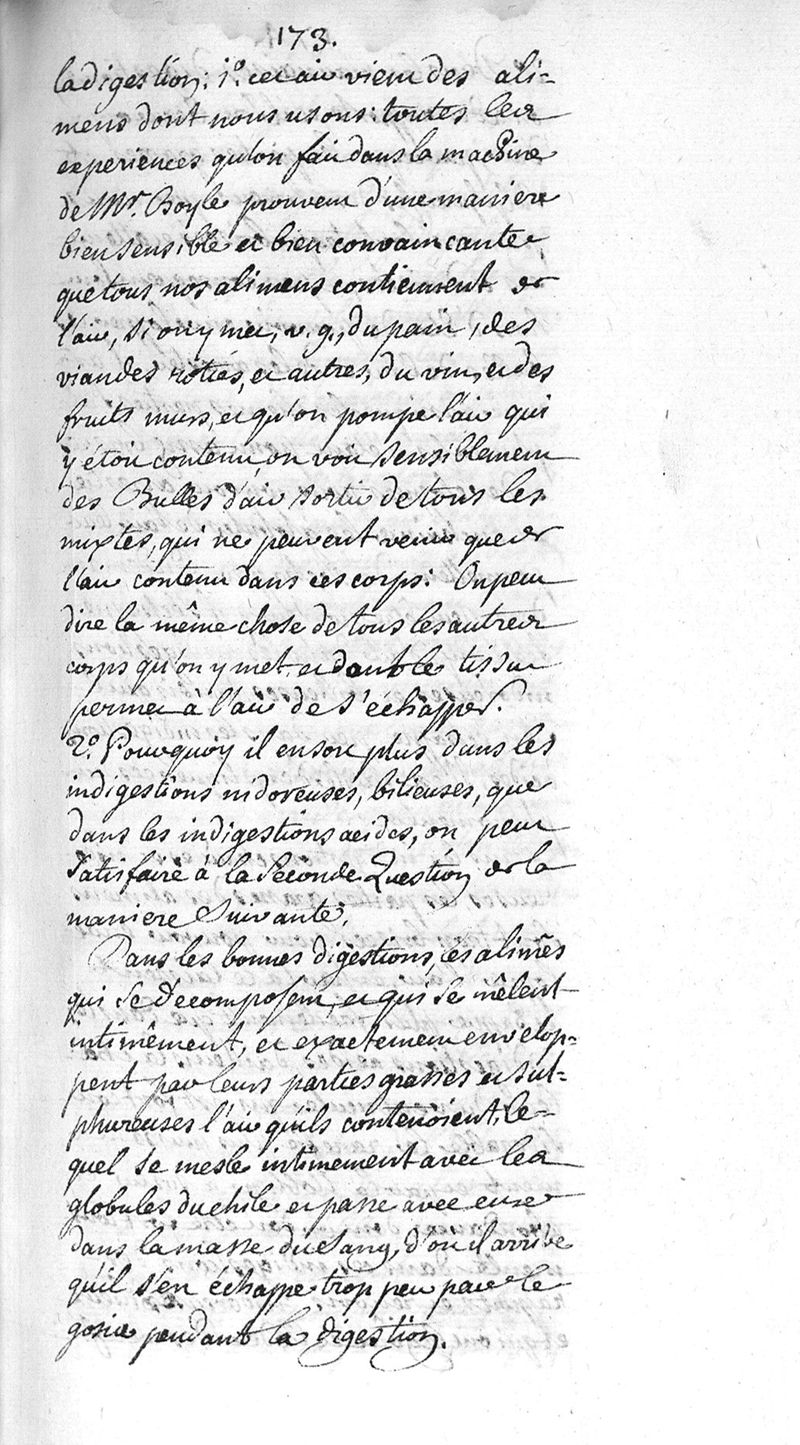 173.
la digestion: 1.º cet air vient des ali-
mens dont nous usons: toutes les
experiences qu'on fait dans la machine
de Mr. Boyle prouvent d'une maniere
bien sensible et bien convaincante
que tous nos alimens contiennent de
l'air, si on y met, v. g., du pain, des
viandes roties, et autres, du vin, et des
fruits murs, et qu'on pompe l'air qui
y étoit contenu, on voit sensiblement
des Bulles d'air sortir de tous les
mixtes, qui ne peuvent venir que de
l'air contenu dans ces corps: On peut
dire la même chose de tous les autres
corps qu'on y met et dont le tissu
permet à l'air de s'échapper.
2.º Pourquoy il en sort plus dans les
indigestions nidoreuses, bilieuses, que
dans les indigestions acides, on peut
satisfaire à la seconde Question de la
maniere suivante.
Dans les bonnes digestions, les alimês
qui se décomposent, et qui se mêlent
intimêment, et exactement envelop-
pent par leurs parties grasses et sul-
phureuses l'air qu'ils contenoient, le-
quel se mesle intimement avec les
globules du chile et passe avec eux
dans la masse du sang, d'où il arrive
qu'il s'en échappe trop peu par le
gosier pendant la digestion.